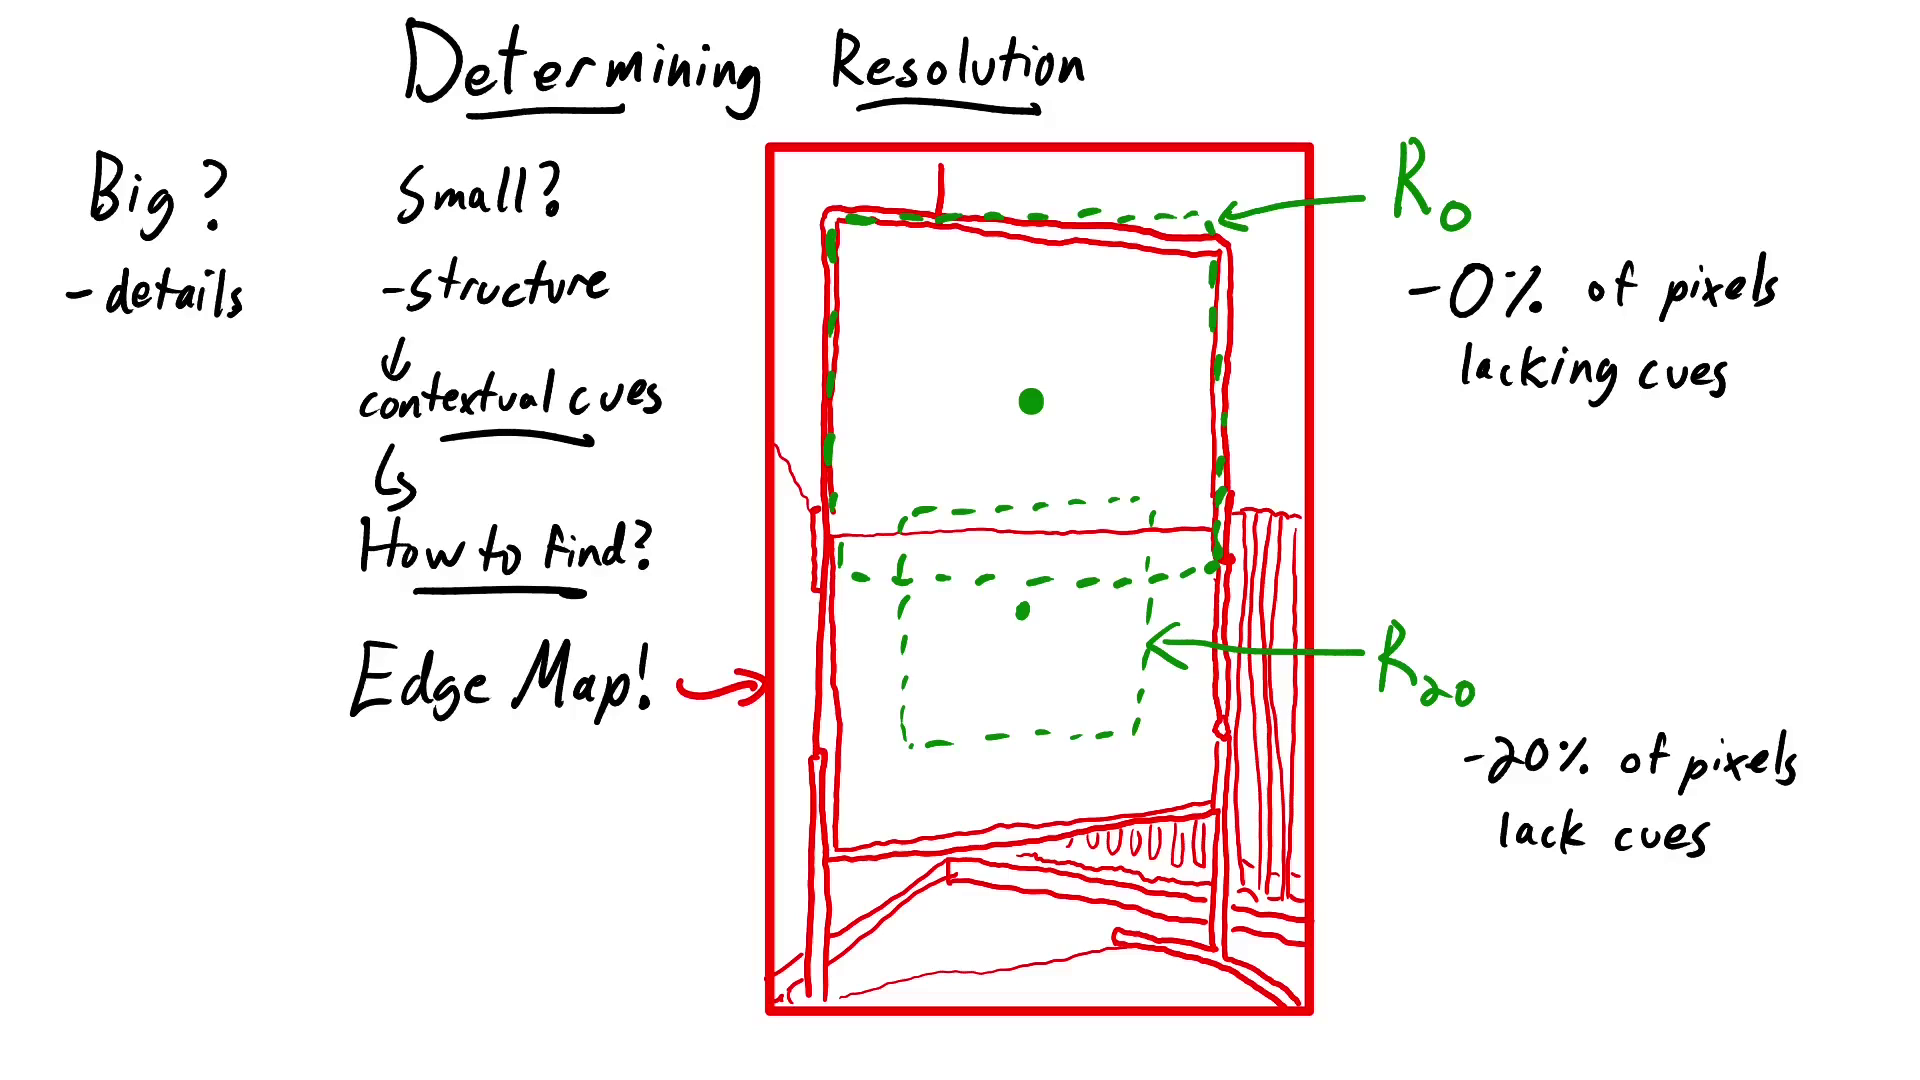 Determining Resolution
Big?
- details
Small?
- structure
↓
contextual cues
↳
How to find?
Edge Map!
R₀
- 0% of pixels
lacking cues
R₂₀
- 20% of pixels
lack cues